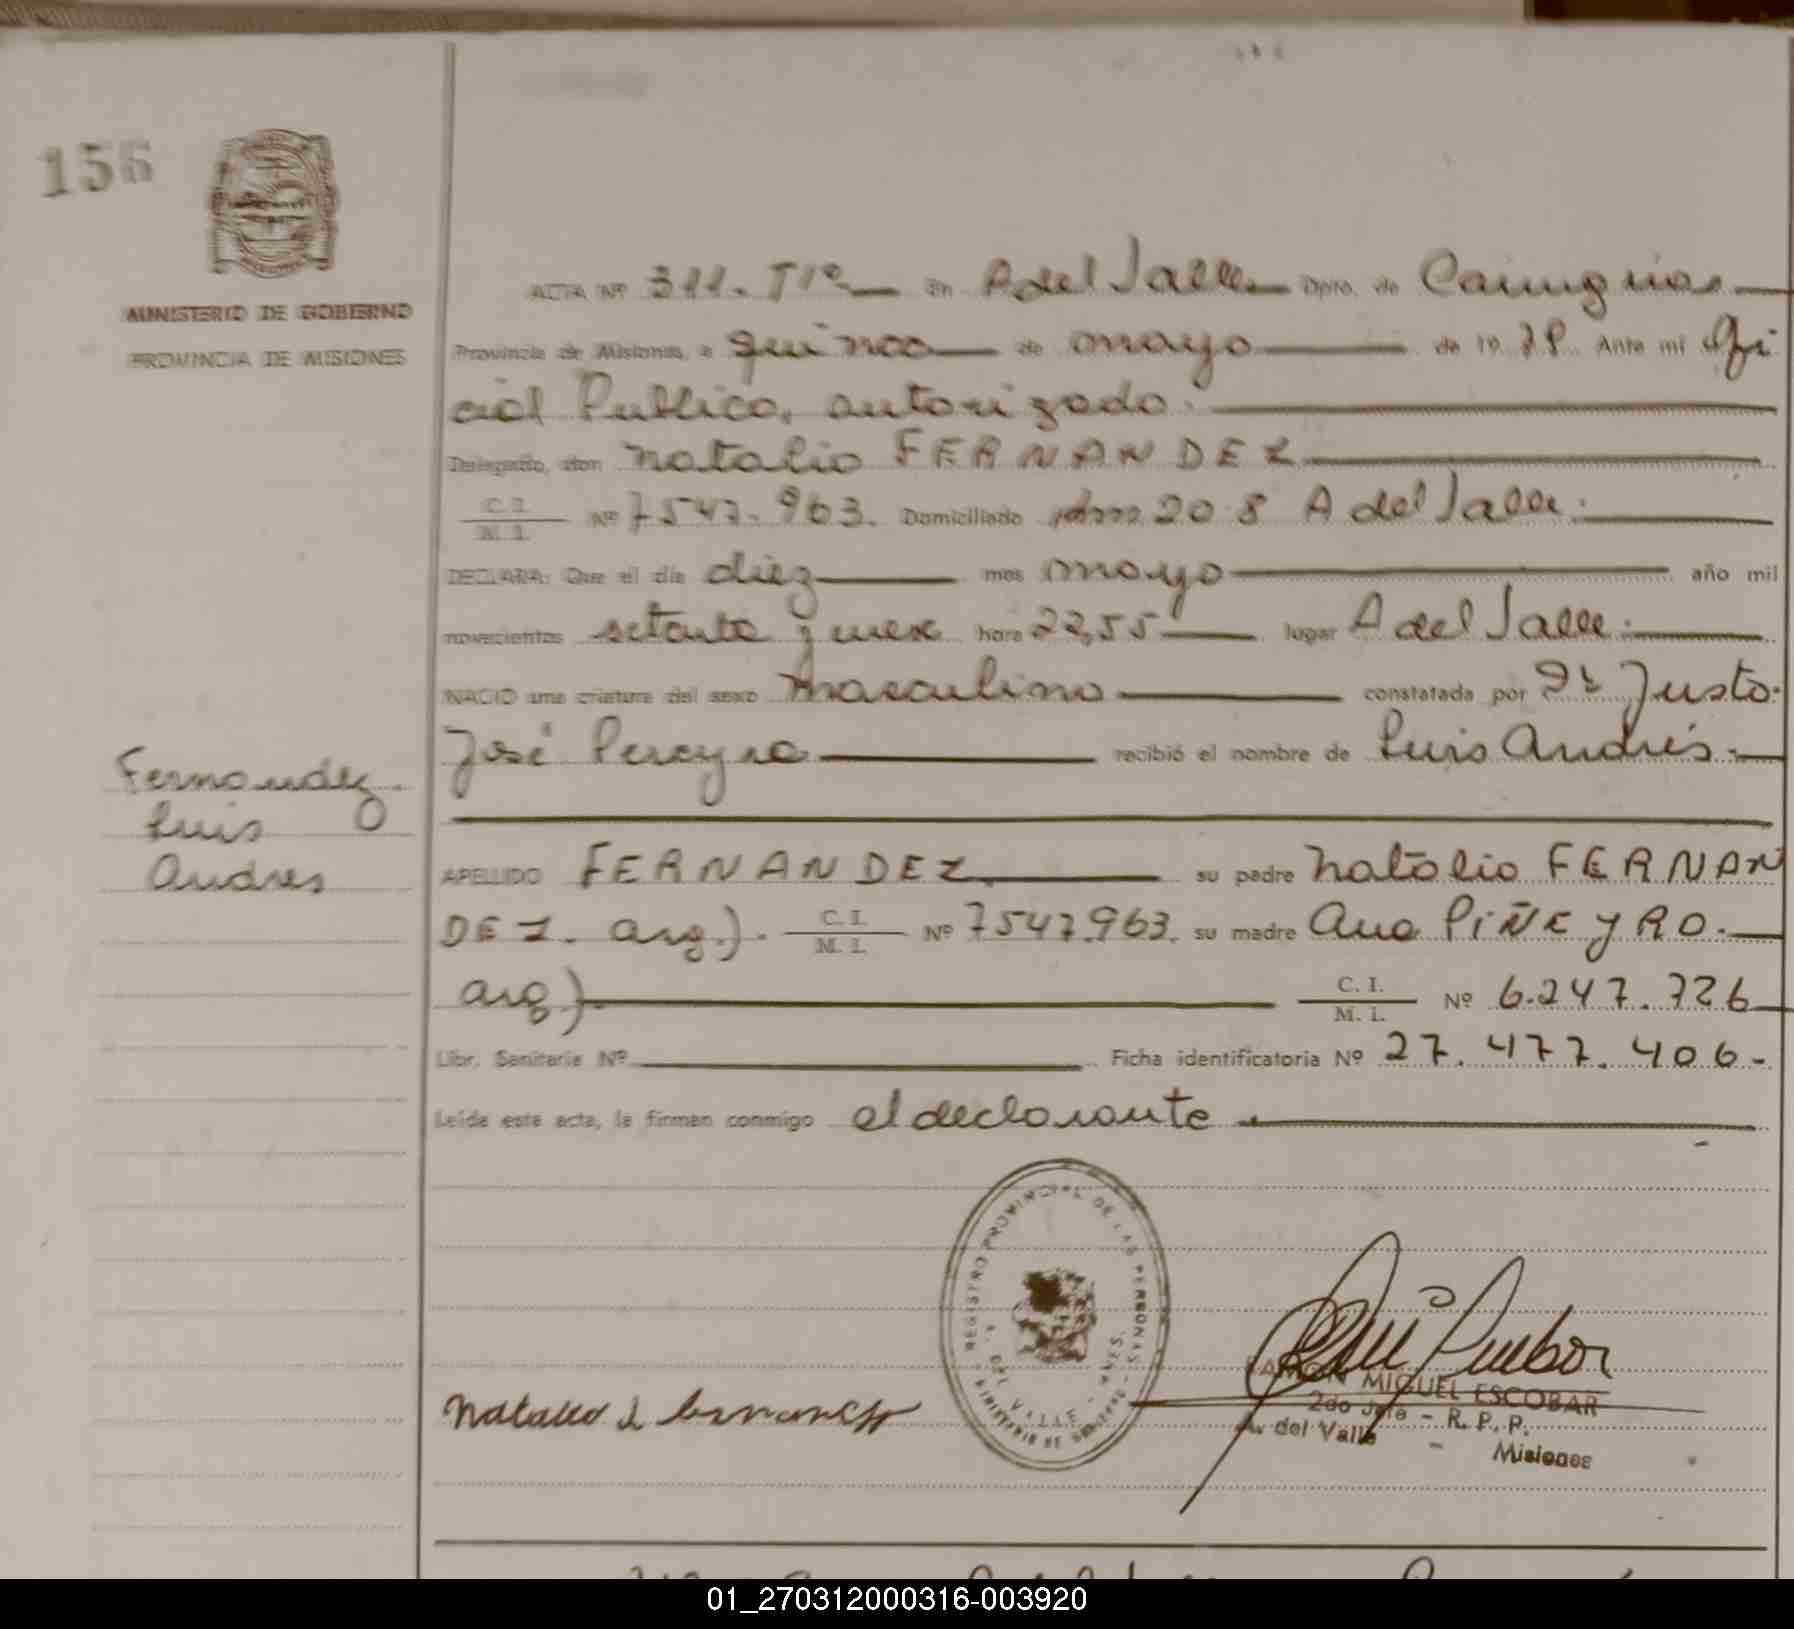 156
MINISTERIO DE GOBIERNO
PROVINCIA DE MISIONES
ACTA Nº 311. T1º En A del Valle Dpto. de Cainguas
Provincia de Misiones, a quince de mayo de 19 79 Ante mi Ofi
cial Publico, autorizado.
Delegado, don Natalio FERNANDEZ
C. I.
M. I. Nº 7547.963. Domiciliado 208 A del Valle.
DECLARA: Que el día diez mes mayo año mil
novecientos setenta y nueve hora 22,55 lugar A del Valle.
NACIO una criatura del sexo masculino constatada por Dr Justo
José Pereyra recibió el nombre de Luis Andrés.
Fernandez
Luis
Andres
APELLIDO FERNANDEZ su padre Natalio FERNAN
DEZ. arg.). C. I.
M. I. Nº 7547.963. su madre Ana PIÑEYRO.
arg) C. I.
M. I. Nº 6.247.726
Libr. Sanitaria Nº Ficha identificatoria Nº 27.477.406-
Leída este acta, la firman conmigo el declarante
REGISTRO PROVINCIAL DE LAS PERSONAS
MINISTERIO DE GOBIERNO
A. DEL VALLE - MNES.
RAMON MIGUEL ESCOBAR
2do Jefe - R. P. P.
A. del Valle - Misiones
01_270312000316-003920